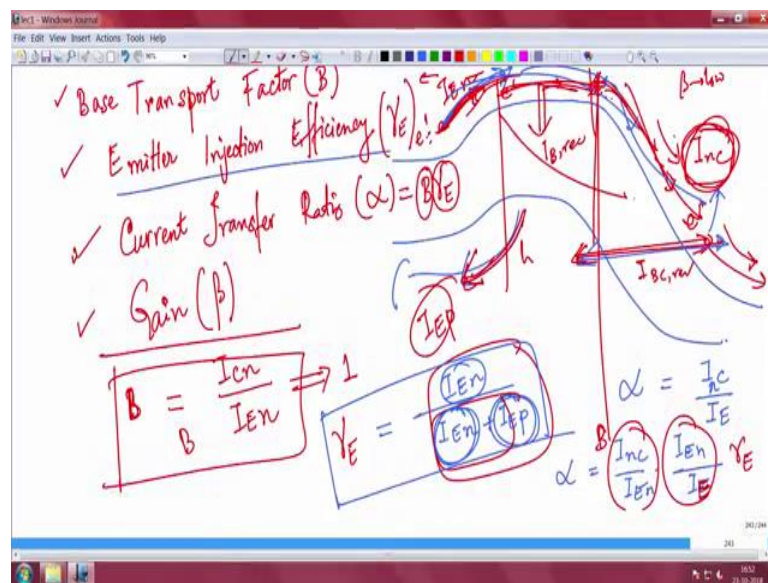 lec1 - Windows Journal
File Edit View Insert Actions Tools Help
✓ Base Transport Factor (B)
✓ Emitter Injection Efficiency (γE)
✓ Current Transfer Ratio (α) = B γE
✓ Gain (β)
B = Icn / IEn ⇒ 1
B
γE = IEn / (IEn + IEp)
IEn
e:
IB,rec
β→low
Inc
IBC,rev
h
IEp
α = Inc / IE
α = Inc / IEn IEn / IE γE
B
243/244
243
1652
23-03-2018